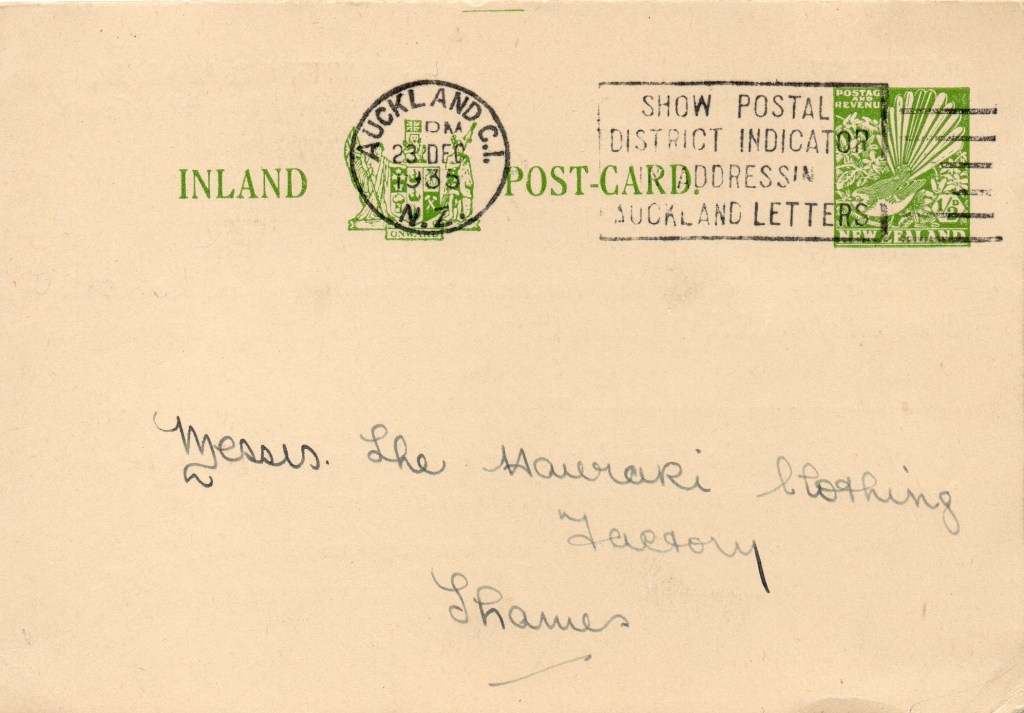 INLAND POST-CARD.
ONWARD
AUCKLAND C.1.
PM
23 DEC
1935
N.Z.
SHOW POSTAL
DISTRICT INDICATOR
IN ADDRESSING
AUCKLAND LETTERS
POSTAGE
AND
REVENUE
½D
NEW ZEALAND
Messrs. The Hauraki Clothing
Factory
Thames